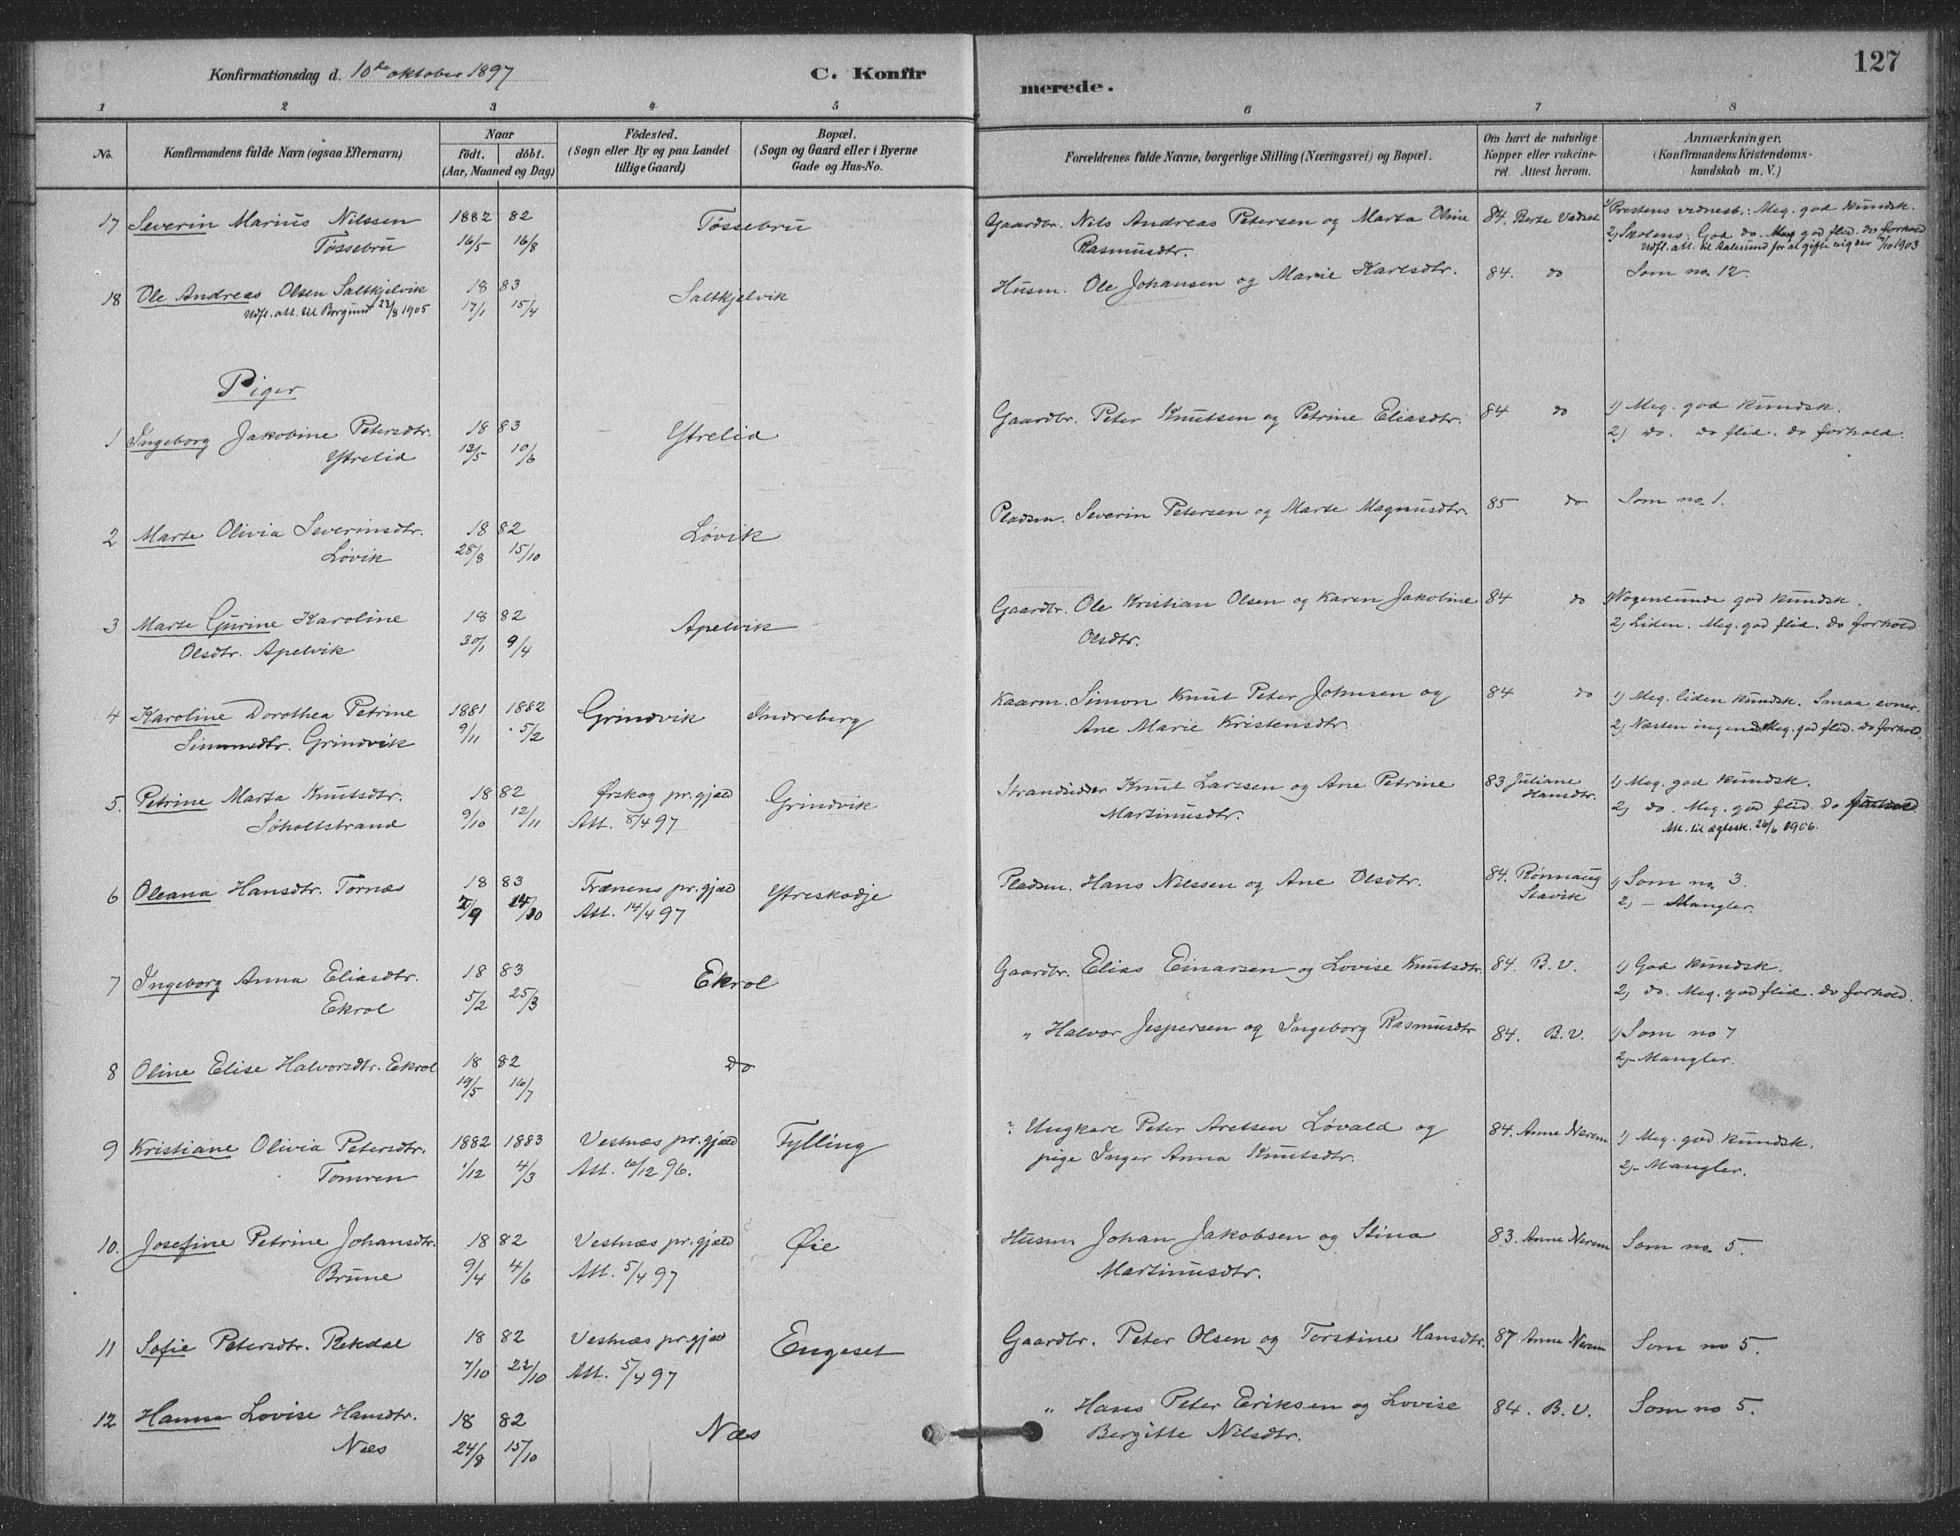 127
Konfirmationsdag d. 10de oktober 1897
C. Konfirmerede.
1 2 3 4 5 6 7 8
No.
Konfirmandens fulde Navn (ogsaa Efternavn)
Naar
født. døbt.
(Aar, Maaned og Dag)
Fødested.
(Sogn eller By og paa Landet
tillige Gaard)
Bopæl.
(Sogn og Gaard eller i Byerne
Gade og Hus-No.
Forældrenes fulde Navne, borgerlige Stilling (Næringsvei) og Bopæl.
Om havt de naturlige
Kopper eller vakcine-
ret. Attest herom.
Anmærkninger.
(Konfirmandens Kristendoms-
kundskab m. V.)
17 Severin Marius Nilssen 1882 82 Tøssebru Gaardbr. Nils Andreas Petersen og Marta Oline 84. Berte Vadset 1) Prestens vidnesb.: Meg. god kundsk.
Tøssebru 16/5 16/8 Rasmusdtr. 2) Skolens: God do. Meg god flid. do forhold
Udfl. att. til Aalesund for at gifte sig der /10 1903
18 Ole Andreas Olsen Saltkjelvik 18 83 Saltkjelvik Husm. Ole Johansen og Marie Karlsdtr. 84. do Som no. 12
Udfl. att. til Borgund 22/8 1905 17/1 15/4
Piger
1 Ingeborg Jakobine Petersdtr. 18 83 Ytrelid Gaardbr. Peter Knutsen og Petrine Eliasdtr. 84 do 1) Meg. god kundsk.
Ytrelid 13/5 10/6 2) do. do flid. do forhold.
2 Marte Olivia Severinsdtr. 18 82 Løvik Pladsm. Severin Petersen og Marte Magnusdtr. 85 do Som no. 1.
Løvik 28/8 15/10
3 Marte Gurine Karoline 18 82 Apelvik Gaardbr. Ole Kristian Olsen og Karen Jakobine 84 do 1) Nogenlunde god kundsk.
Olsdtr. Apelvik 30/1 9/4 Olsdtr. 2) Liden. Meg. god flid. do forhold
4 Karoline Dorothea Petrine 1881 1882 Grindvik Indreberg Kaarm. Simon Knut Peter Johnsen og 84 do 1) Meg. liden kundsk. Smaa evner.
Simonsdtr. Grindvik 9/11 5/2 Ane Marie Kristensdtr. 2) Næsten ingen. Meg. god flid. do forhold.
5. Petrine Marta Knutsdtr. 18 82 Ørskog pr.gjæld Grindvik Strandsidder Knut Larssen og Ane Petrine 83 Juliane Hansdtr. 1) Meg. god kundsk.
Søholtstrand 9/10 12/11 Att. 8/4 97 Martinusdtr. 2) do. Meg. god flid. do forhold
Att. til ægtesk. 26/6 1906.
6 Oleana Hansdtr. Tornæs 18 83 Frænens pr.gjæld Ytreskodje Pladsm. Hans Nilssen og Ane Olsdtr. 84. Rønnaug Stavik 1) Som no. 3.
2/9 14/10 Att. 14/4 97 2) – Mangler.
7 Ingeborg Anna Eliasdtr. 18 83 Ekrol Gaardbr. Elias Einarsen og Lovise Knutsdtr. 84. B.V. 1) God kundsk.
Ekrol 5/2 25/3 2) do. Meg. god flid. do forhold.
8 Oline Elise Halvorsdtr. Ekrol 18 82 do " Halvor Jespersen og Ingeborg Rasmusdtr 84. B.V. 1) Som no 7
19/5 16/7 2) – Mangler.
9 Kristiane Olivia Petersdtr. 1882 1883 Vestnæs pr.gjæld Fylling Ungkare Peter Aretsen Løvald og 84. Anne Nerem 1) Meg. god kundsk.
Tomren 1/12 4/3 Att. 6/12 96. pige Inger Anna Knutsdtr. 2) – Mangler.
10. Josefine Petrine Johansdtr. 18 82 Vestnæs pr.gjæld Øie Husm Johan Jakobsen og Stina 83. Anne Nerem Som no. 5.
Brune 9/4 4/6 Att. 5/4 97 Martinusdtr.
11 Sofie Petersdtr. Rekdal 18 82 Vestnæs pr.gjæld Engeset Gaardbr. Peter Olsen og Torstine Hansdtr. 87 Anne Nerem Som no 5.
7/10 22/10 Att. 5/4 97
12 Hanna Lovise Hansdtr. 18 82 Næs " Hans Peter Eriksen og Lovise 84. B.V. Som no 5.
Næs 24/8 15/10 Bergitte Nilsdtr.